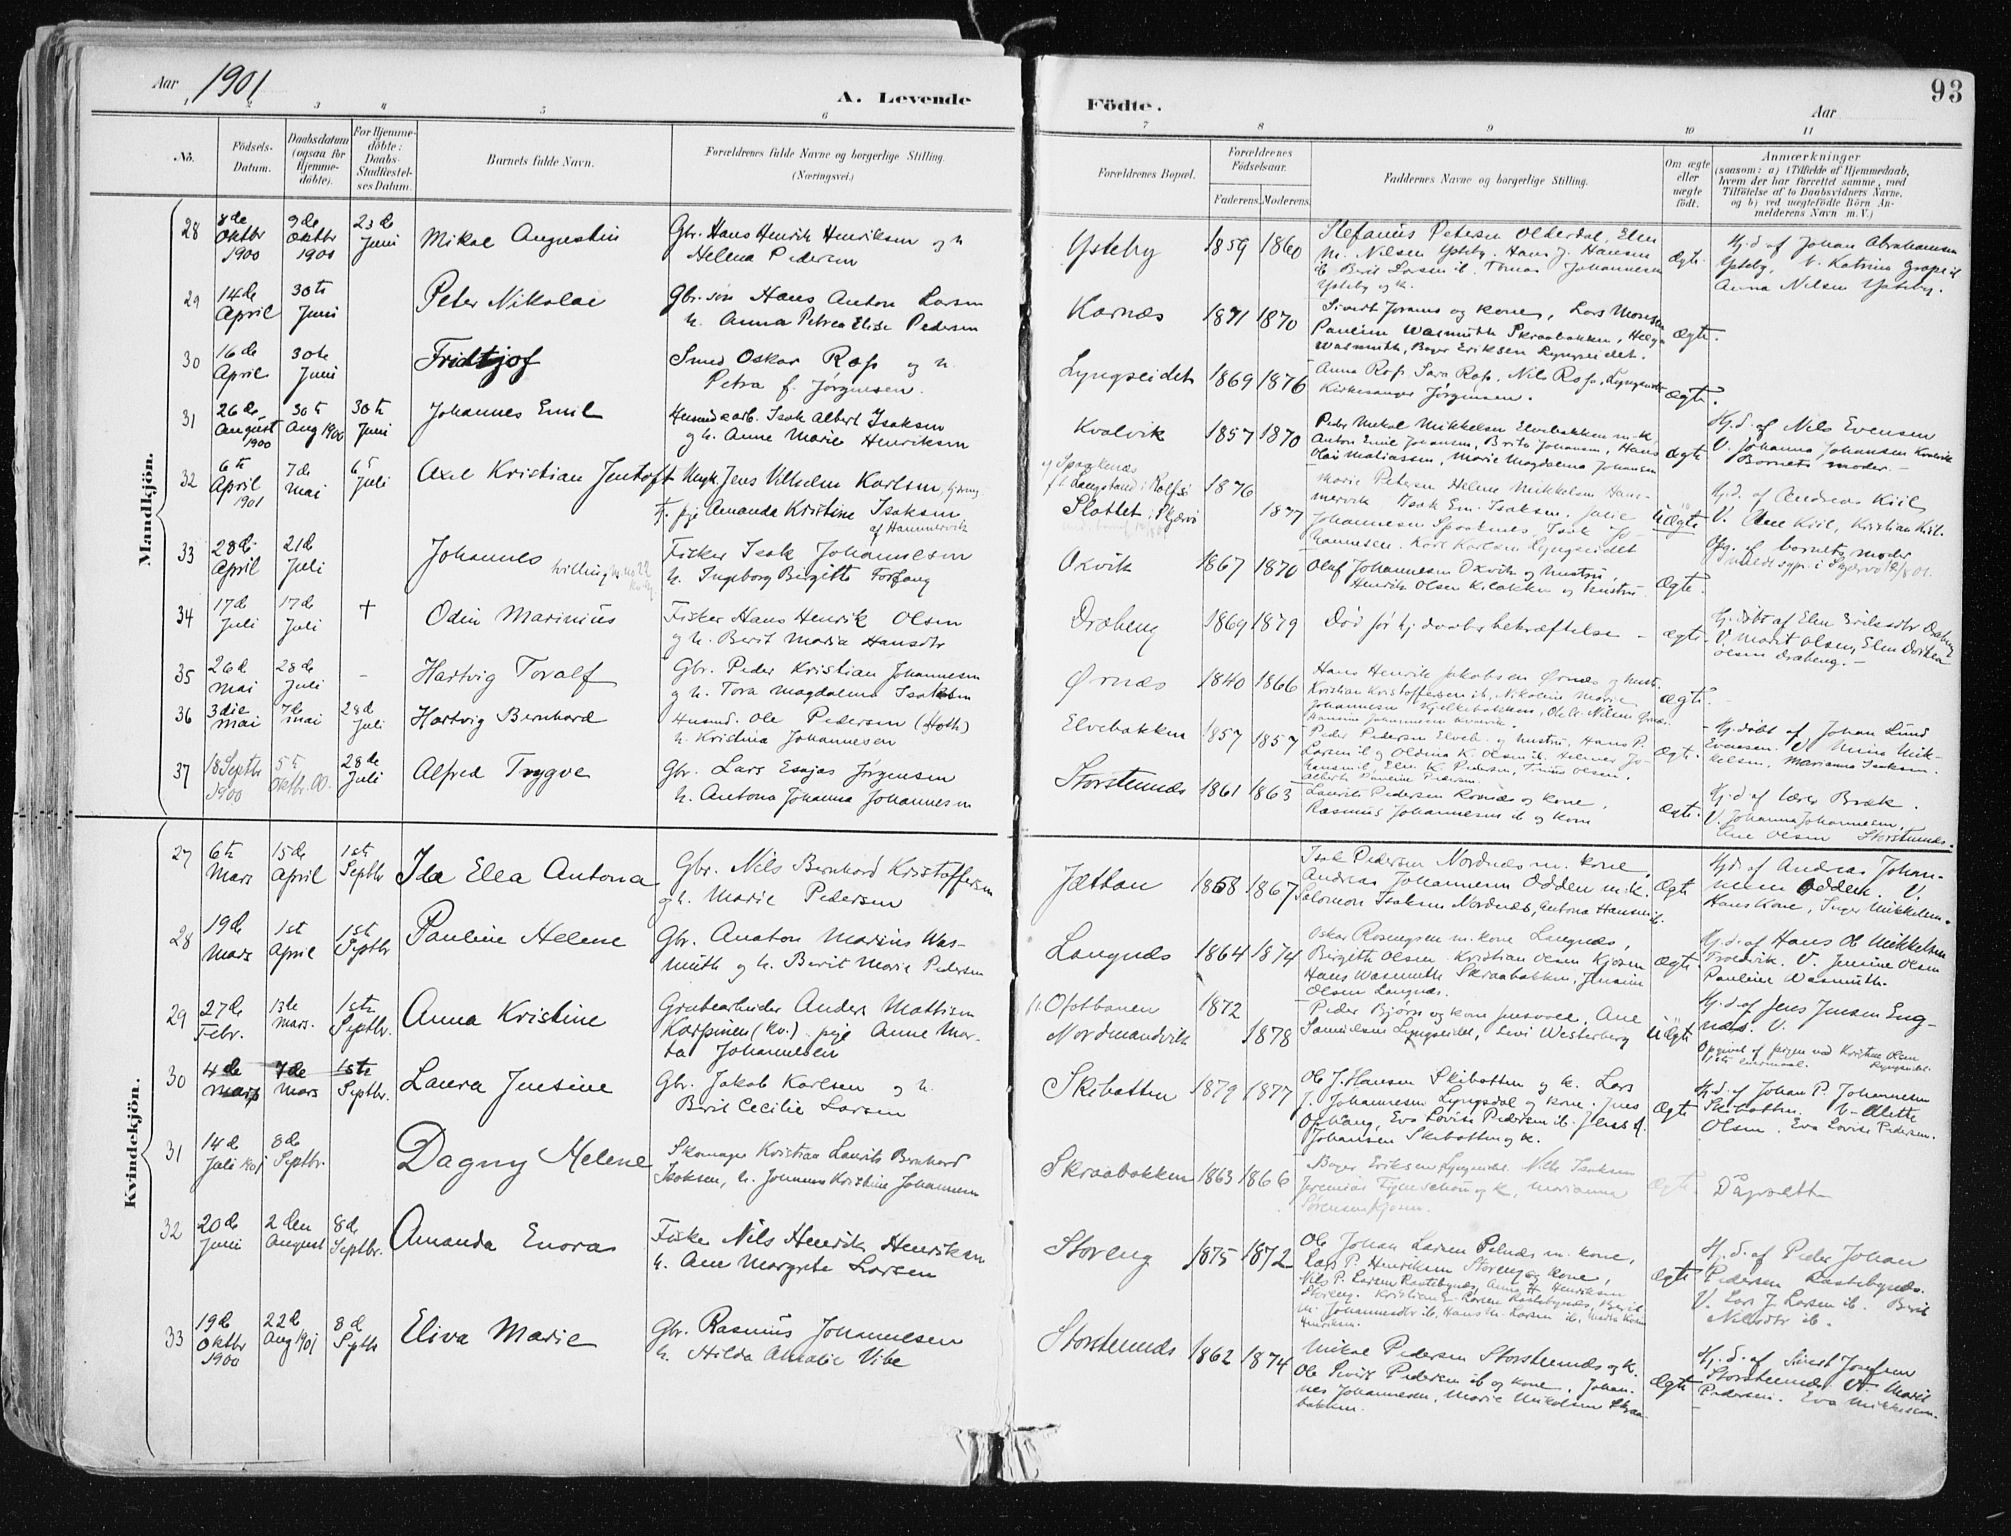 Aar 1901
A. Levende
Födte.
Aar
93
1 2 3 4 5 6 7 8 9 10 11
No.
Födsels-
Datum.
Daabsdatum
(ogsaa for
Hjemme-
döbte).
For Hjemme-
döbte:
Daabs-
Stadfæstel-
ses Datum.
Barnets fulde Navn.
Forældrenes fulde Navne og borgerlige Stilling.
(Næringsvei.)
Forældrenes Bopæl.
Forældrenes
Födselsaar.
Faderens. Moderens.
Faddernes Navne og borgerlige Stilling.
Om ægte
eller
uægte
födt.
Anmærkninger
(saasom: a) i Tilfælde af Hjemmedaab,
hvem der har forrettet samme, med
Tilföielse af to Daabsvidners Navne,
og b) ved uægtefödte Börn An-
melderens Navn m. V.)
Mandkjön.
28 8de Oktbr 1900 9de Oktbr 1900 23de Juni Mikal Augustin
Gbr. Hans Henrik Henriksen og h.
Helena Pedersen
Ysteby 1859 1860
Stefanus Petersen Olderdal, Elen
M. Nilsen Ysteby. Hans J. Hansen
ib. Berit Larsen ib. Tomas Johannesen
Ysteby og k.
ægte.
Hj.d. af Johan Abrahamsen
Ysteby. V. Katrina
Anna Nilsen Ysteby.
29 14de April 30te Juni Peter Nikolai
Gbr. søn Hans Anton Larsen
h. Anna Petrea Elise Pedersen
Karnæs 1871 1870
og kone, Lars Monsen
Pauline Wasmuth Skraabakken, Helga
Wasmuth, Boger Eriksen Lyngseidet.
ægte.
30 16de April 30te Juni Fridtjof
Smed Oskar Rosp og h.
Petra f. Jørgensen.
Lyngseidet 1869 1876
Anna Rosp Sara Rosp, Nils Rosp, Lyngseidet
Kirkesanger Jørgensen.
ægte.
31 26de August 1900 30te Aug 1900 30te Juni Johannes Emil
Isak Albert Isaksen
og h. Anne Marie Henriksen
Kvalvik 1857 1870
Peder Mikal Mikkelsen Elvebakken m. k.
Anton Emil Johansen, Brita Johansen, Hans
Olai Matiassen, Marie Magdalena Johansen
ægte
Hj.d. af Nils Evensen
V. Johanna Johansen Kvalvik
Barnets moder.
32 6te April 1901 7de Mai 6te Juli Axel Kristian Jentoft
Ungk. Jens Vilhelm Karlsen
F. pige Amanda Kristine Isaksen
af Hammervik
Spaaknæs
Slottet i Skjervø
1876
1877
Marie Petersen Helene Mikkelsen Ham-
mervik Isak Em. Isaksen.
Johannesen Spaaknes, Isak Jo-
hannesen. Karl Karlsen Lyngseidet
Uægte
Hj.d. af Andreas Kiil
V. Ane Kiil, Kristian Kiil.
Opg. af barnets moder
33 28de April 21de Juli Johannes
tvilling
Fisker Isak Johannesen
h. Ingeborg Birgitte Forfang
Okvik 1867 1870
Oluf Johannesen Okvik og hustru,
Henrik Olsen Kilbakken og hustru
ægte.
34 17de Juli 17de Juli † Odin Marinius
Fisker Hans Henrik Olsen
og h. Berit Maria Hansdtr
Drabeng 1869 1879
Død før hj. daabs bekræftelse
ægte.
Hj. døbt af Elen Eriksdtr Drabeng
V. Marit Olsen, Elen Dorthea
Olsen Drabeng.
35 26de Mai 28de Juli - Hartvig Toralf
Gbr. Peder Kristian Johannesen
og h. Tora Magdalena Isaksen
Ørnæs 1840 1866
Hans Henrik Jakobsen Ørnæs og hustr.
Kristian Kristoffersen ib, Nikoline Marie
ægte.
36 3die Mai 7de Mai 28de Juli Hartvig Bernhard
Husmd. Ole Pedersen (Hoth)
h. Kristina Johannesen
Elvebakken 1857 1857
Peder Pedersen Elveb. og hustru, Hans P.
Larsen ib og Oldina K. Olsen ib. Helmer Jo-
Elen K. Pedersen, Trine Olsen,
ægte.
Hj.døbt af Johan Lund
Evensen. V. Mina Mik-
kelsen, Marianna Isaksen.
37 18 Septbr 1900 5te Oktbr. 00. 28de Juli Alfred Trygve
Gbr. Lars Esajas Jørgensen
h. Antona Johanna Johannesen
Storsteinnæs 1861 1863
Laurits Pedersen Rornæs og kone,
Rasmus Johannesen ib og kone
ægte.
Hj.d af lærer Bræk.
V. Johanna Johannesen,
Line Olsen Storsteinnæs.
Kvindekjön.
27 6te Mars 15de April 1ste Septbr Ida Elea Antona
Gbr. Nils Bernhard Kristoffersen
og h. Marie Pedersen
Jættan 1868 1867
Isak Pedersen Nordnæs m. kone,
Andreas Johannesen Odden m. k.
Salomon Isaksen Nordnæs, Antona Hansen ib.
ægte
Hj.d. af Andreas Johan-
nesen Odden. V.
Hans Kone, Inger Mikkelsen.
28 19de Mars 1st April 1st Septbr Pauline Helene
Gbr. Anaton Marius Was-
muth og h. Berit Marie Pedersen
Langnæs 1864 1874
Oskar Rosengsen m. kone Langnæs,
Birgitte Olsen. Kristian Olsen Kjosen
Hans Wasmuth Skraabakken, Jensine
Olsen Langnæs.
ægte.
Hj.d. af Hans Ol Mikkelsen
Troelvik. V. Jenine Olsen
Pauline Wasmuth.
29 27de Febr. 13de Mars. 1ste Septbr. Anna Kristine
Grubearbeider Anders Mattisen
Karpinen (kv.) pige Anne Mar-
ta Johannesen
Ofotbanen
Nordmandvik
1872
1878
Peder Bjørn og kone Ane
Samuelsen Lyngseidet, Levi Westerberg
Uægte
Hj.d. af Jens Jensen Eng-
næs. V.
30 4de Mars 7de Mars 1ste Septbr. Laura Jensine
Gbr. Jakob Karlsen og h.
Berit Cecilie Larsen
Skibotten 1879 1877
Ole J. Hansen Skibotten og k. Lars
J. Johannesen Lyngsdal og kone. Jens
Eva Lovise Pedersen ib. Jens A.
Johansen Skibotten og k.
Ægte
Hj.d. af Johan P. Johannesen
Skibotten. V. Alette
Olsen. Eva Lovise Pedersen.
31 14de Juli 1901 8de Septbr. Dagny Helene
Skomager Kristian Laurits Bernhard
Isaksen, h. Johanna Kristine Johannesen
Skraabakken 1863 1866
Boger Eriksen Lyngseidet. Nils Isaksen
Jeremias Figenschou og k, Marianna
Sørensen Kjosen.
ægte
Daapsatt
32 20de Juni 2den August 8de Septbr. Amanda Enora
Fisker Nils Henrik Henriksen
h. Ane Margrete Larsen
Storeng 1875 1872
Ole Johan Larsen Pelnæs m. kone,
Lars P. Henriksen Storeng og kone,
Nils P. Larsen Rastebynæs, Anna H. Henriksen
Storeng. Kristian E. Larsen Rastebynæs, Berit
M. Johannesdtr ib, Hans M. Larsen ib,
Henriksen.
ægte
Hj.d. af Peder Johan
Pedersen Rastebynæs.
V. Lars J. Larsen ib. Berit
Nilsdtr ib.
33 19de Oktbr 1900 22de Aug 1901 8de Septbr Eliva Marie
Gbr. Rasmus Johannesen
h. Hilda Amalie Vibe
Storsteinnæs 1862 1874
Mikal Pedersen Storsteinnæs og k.
Ole Sivert Pedersen ib og kone, Johan-
nes Johannesen, Marie Mikalsen Skraa-
bakken.
Ægte
Hj.d. af Sivert Josefsen
Storsteinnæs. V. Marit
Pedersen. Eva Mikkelsen.